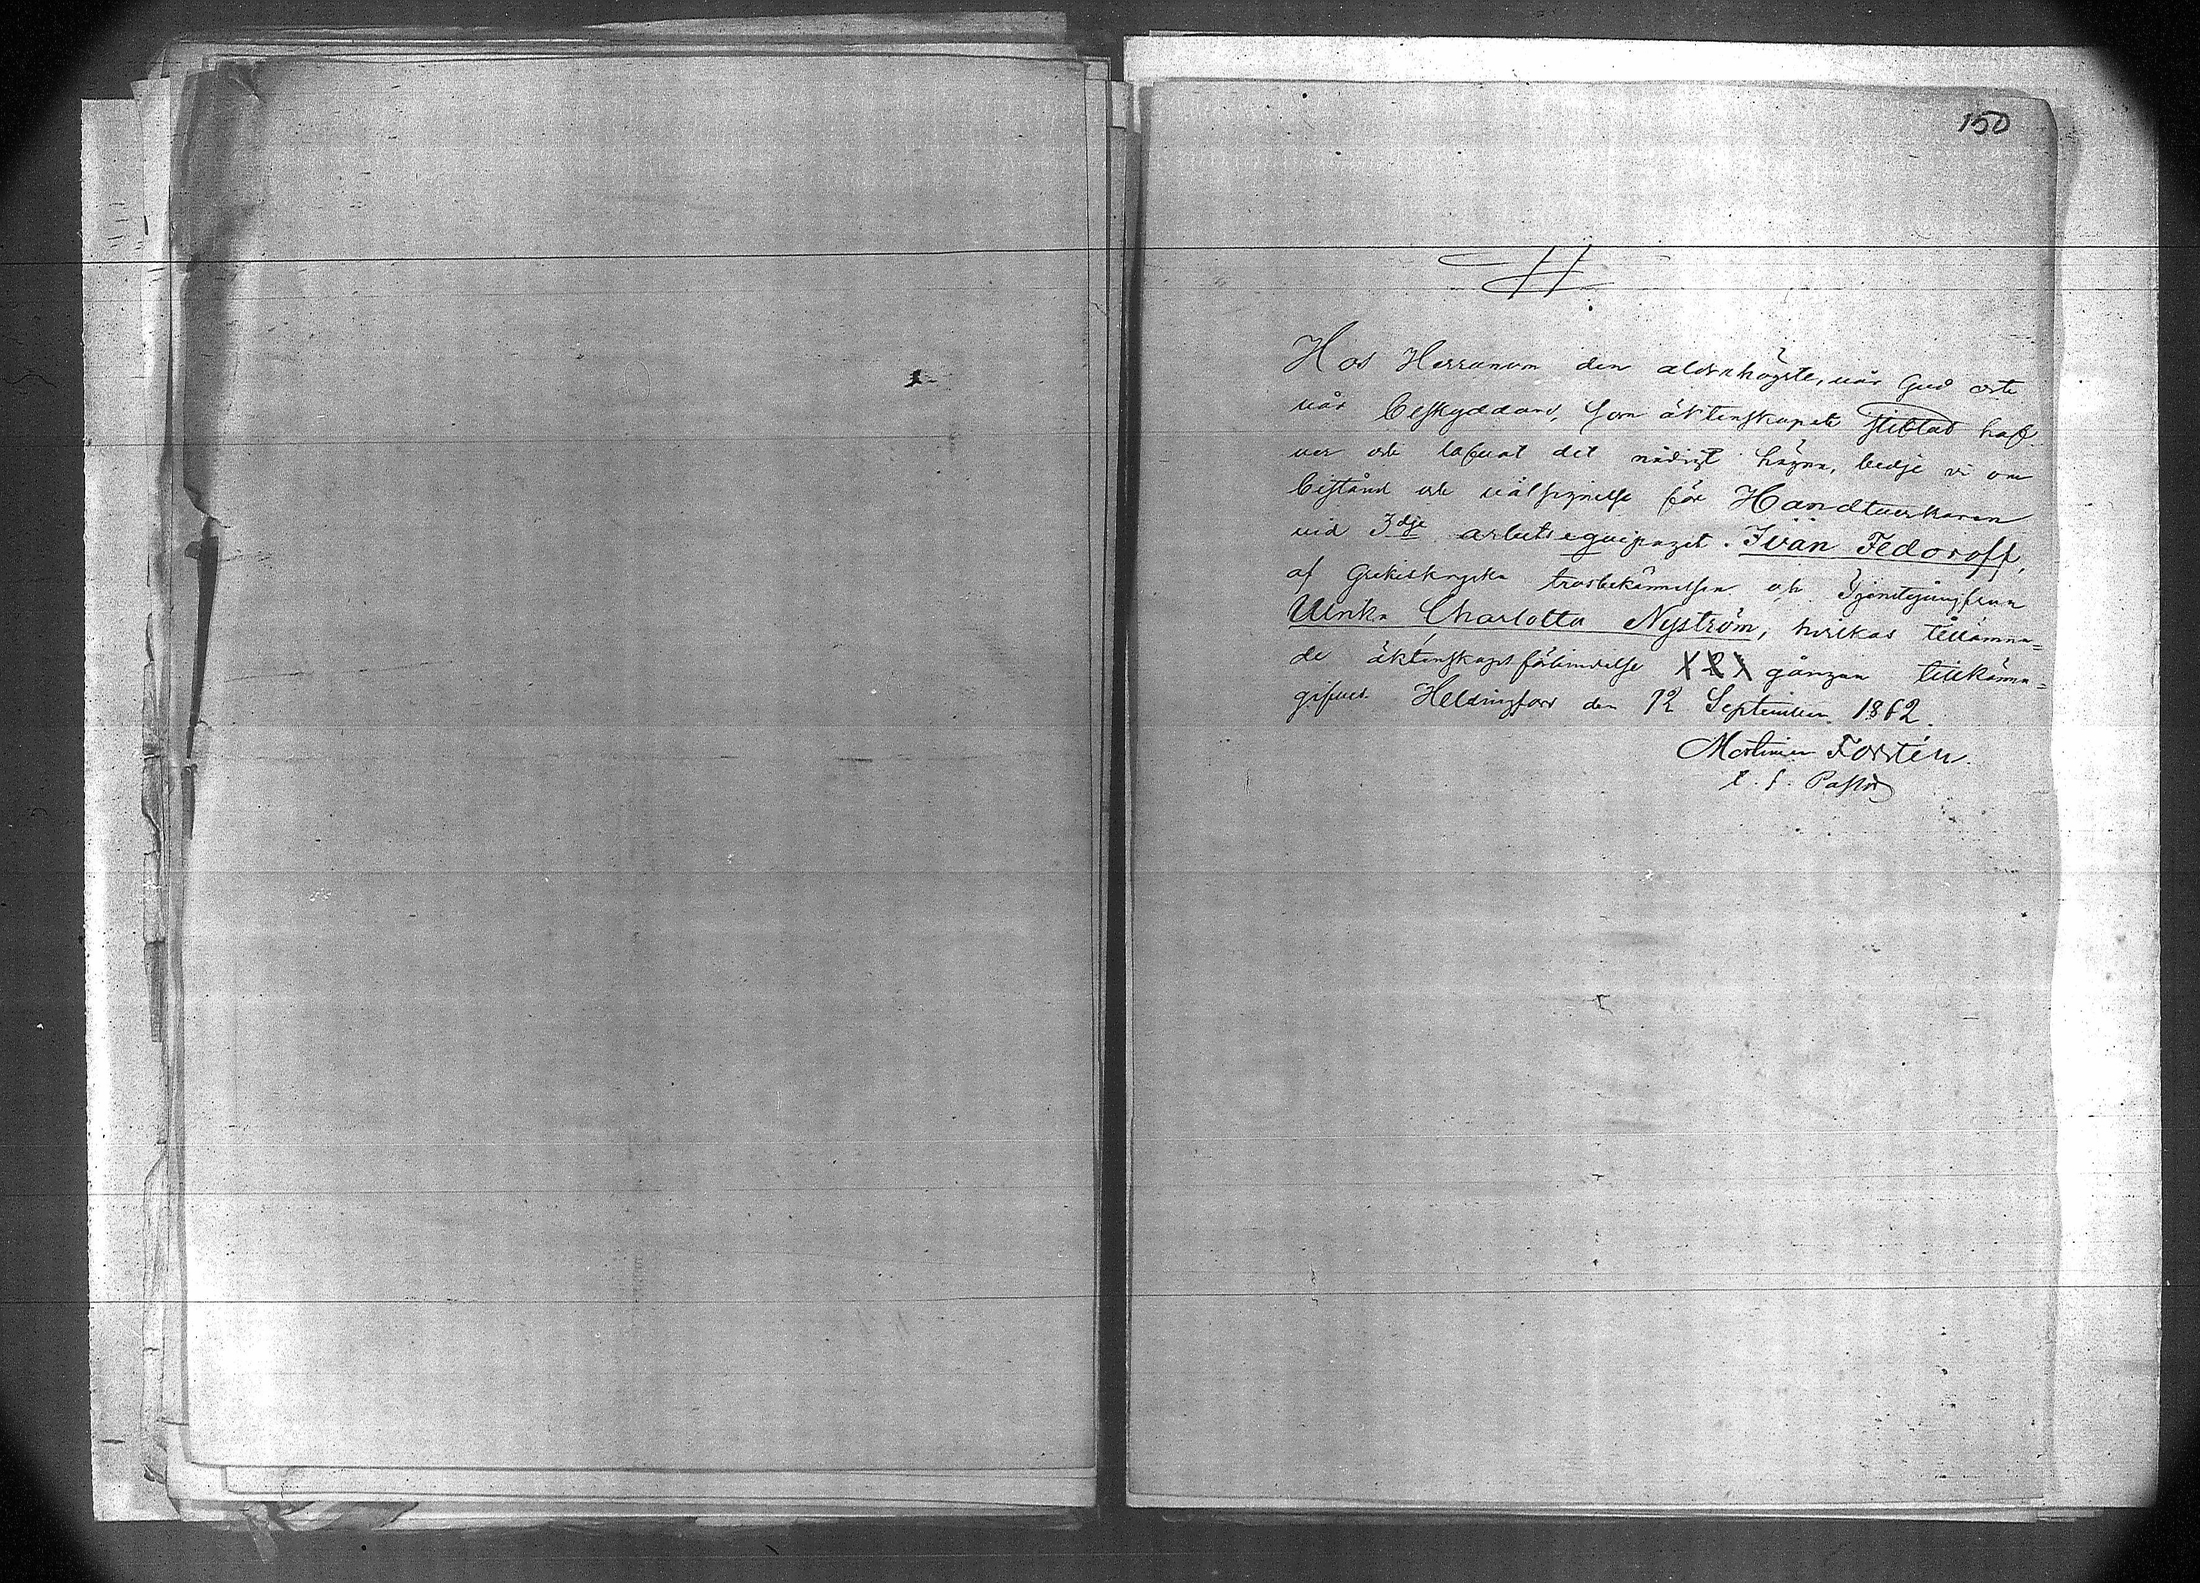 150
Hos Herranom den aldrahögste, vår Gud och
vår beskyddare, som äktenskapet stiktad haf
ver och lofvat det nådigt hägna, bedje vi om
bistånd och välsignelse för Handtverkaren
vid 3dje arbetsequipaget Ivan Fedoroff,
af Grekiskryska trosbekännelsen och Tjenstejungfrun
Ulrika Charlotta Nyström, hvilkas tillämna=
de äktenskapsförbindelse X 2 X gången tillkänna=
gifves. Helsingfors den 12 September 1862.
Mortimer Forstén.
t. f. Pastor